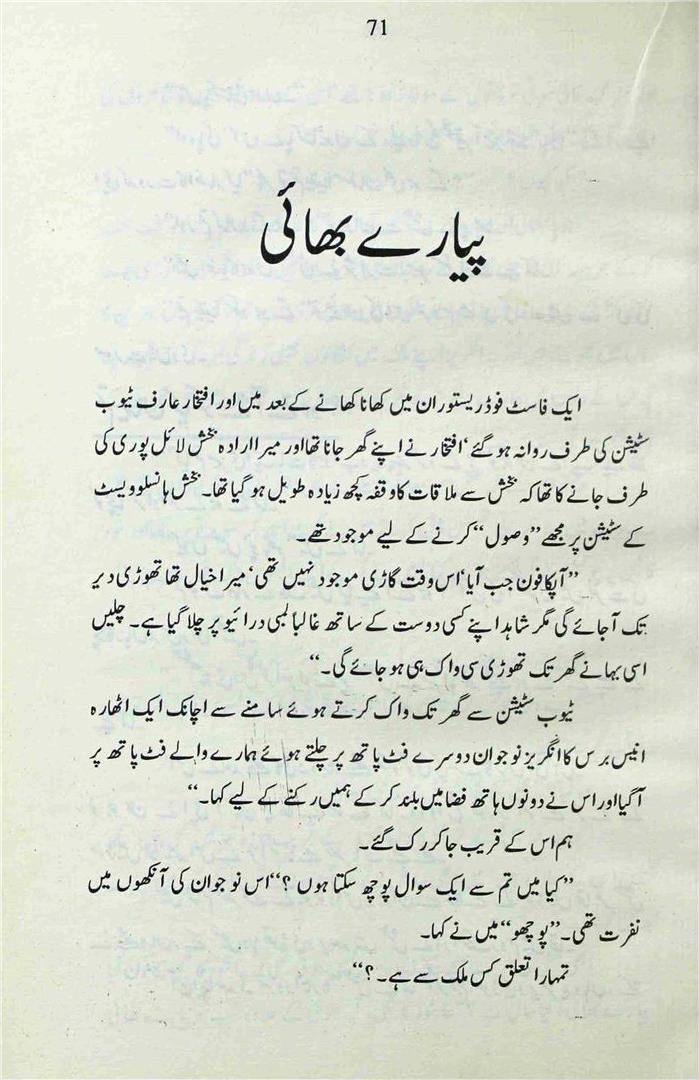 71
پیارے بھائی
ایک فاسٹ فوڈ ریستوران میں کھانا کھانے کے بعد میں اور افتخار عارف ٹیوب
سٹیشن کی طرف روانہ ہو گئے ‘ افتخار نے اپنے گھر جانا تھا اور میرا ارادہ بخش لائل پوری کی
طرف جانے کا تھا کہ بخش سے ملاقات کا وقفہ کچھ زیادہ طویل ہو گیا تھا۔ بخش ہانسلو ویسٹ
کے سٹیشن پر مجھے ”وصول“ کرنے کے لیے موجود تھے۔
”آپکا فون جب آیا‘ اس وقت گاڑی موجود نہیں تھی‘ میرا خیال تھا تھوڑی دیر
تک آجائے گی مگر شاہد اپنے کسی دوست کے ساتھ غالبا لمبی درائیو پر چلا گیا ہے۔ چلیں
اسی بہانے گھر تک تھوڑی سی واک ہی ہو جائے گی۔“
ٹیوب سٹیشن سے گھر تک واک کرتے ہوئے سامنے سے اچانک ایک اٹھارہ
انیس برس کا انگریز نوجوان دوسرے فٹ پاتھ پر چلتے ہوئے ہمارے والے فٹ پاتھ پر
آگیا اور اس نے دونوں ہاتھ فضا میں بلند کر کے ہمیں رکنے کے لیے کہا۔“
ہم اس کے قریب جا کر رک گئے۔
”کیا میں تم سے ایک سوال پوچھ سکتا ہوں ؟“ اس نوجوان کی آنکھوں میں
نفرت تھی۔ ”پوچھو“ میں نے کہا۔
تمہارا تعلق کس ملک سے ہے۔؟“